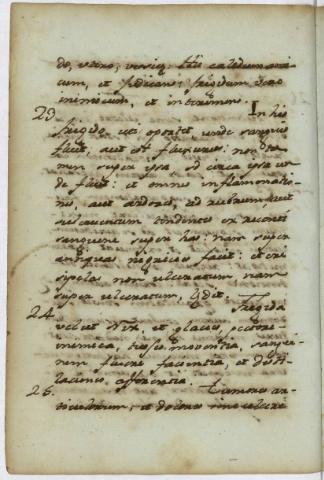 do, utero, vesica: his calidum ami-
cum, et judicans: frigidum vero
inimicum, et interimens.
23. In his
frigido uti oportet, unde sanguis
fluit, aut est fluxurus: non ta-
men super ipsa, sed circa ipsa un-
de fluit: et omnes inflammatio-
nes, aut ardores, ad rubrum aut
tendentes ex recenti
sanguine super has: nam super
antiquas nigrities facit: et eri
sipelas non ulceratum nam
super ulceratum, ledit.
24. Frigida
velut Nix, et glacies, pectori
inimica, tusses moventia, sangui-
nem fluere facientia, et disti-
lationes afferentia.
25. Tumores ar-
ticulorum, et dolores sine ulcere